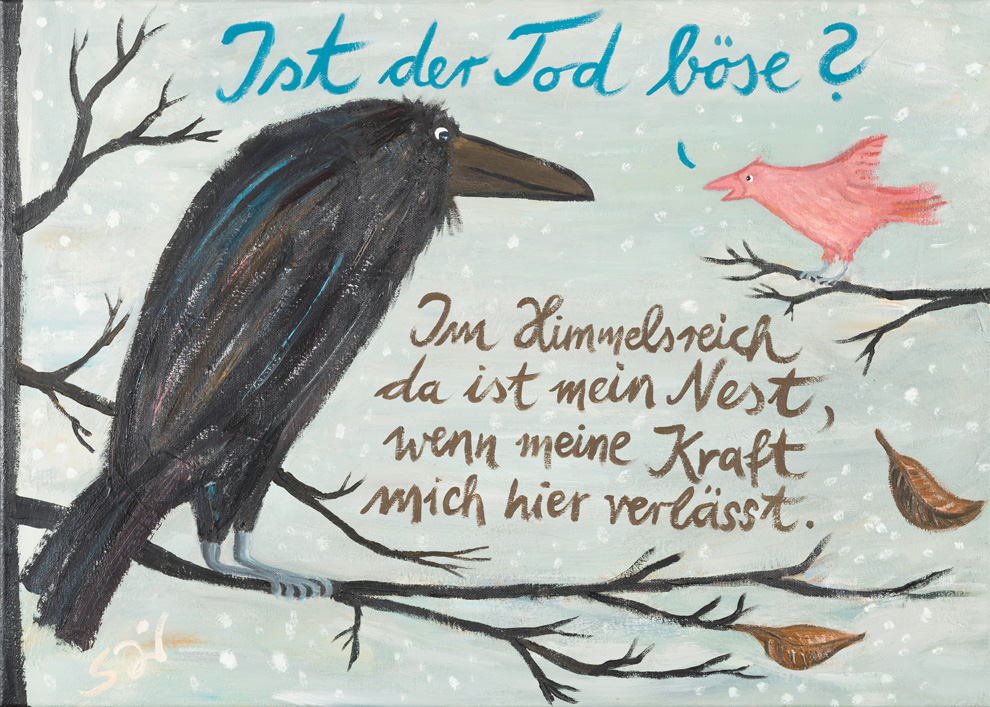 Ist der Tod böse?
Im Himmelsreich
da ist mein Nest,
wenn meine Kraft
mich hier verlässt.